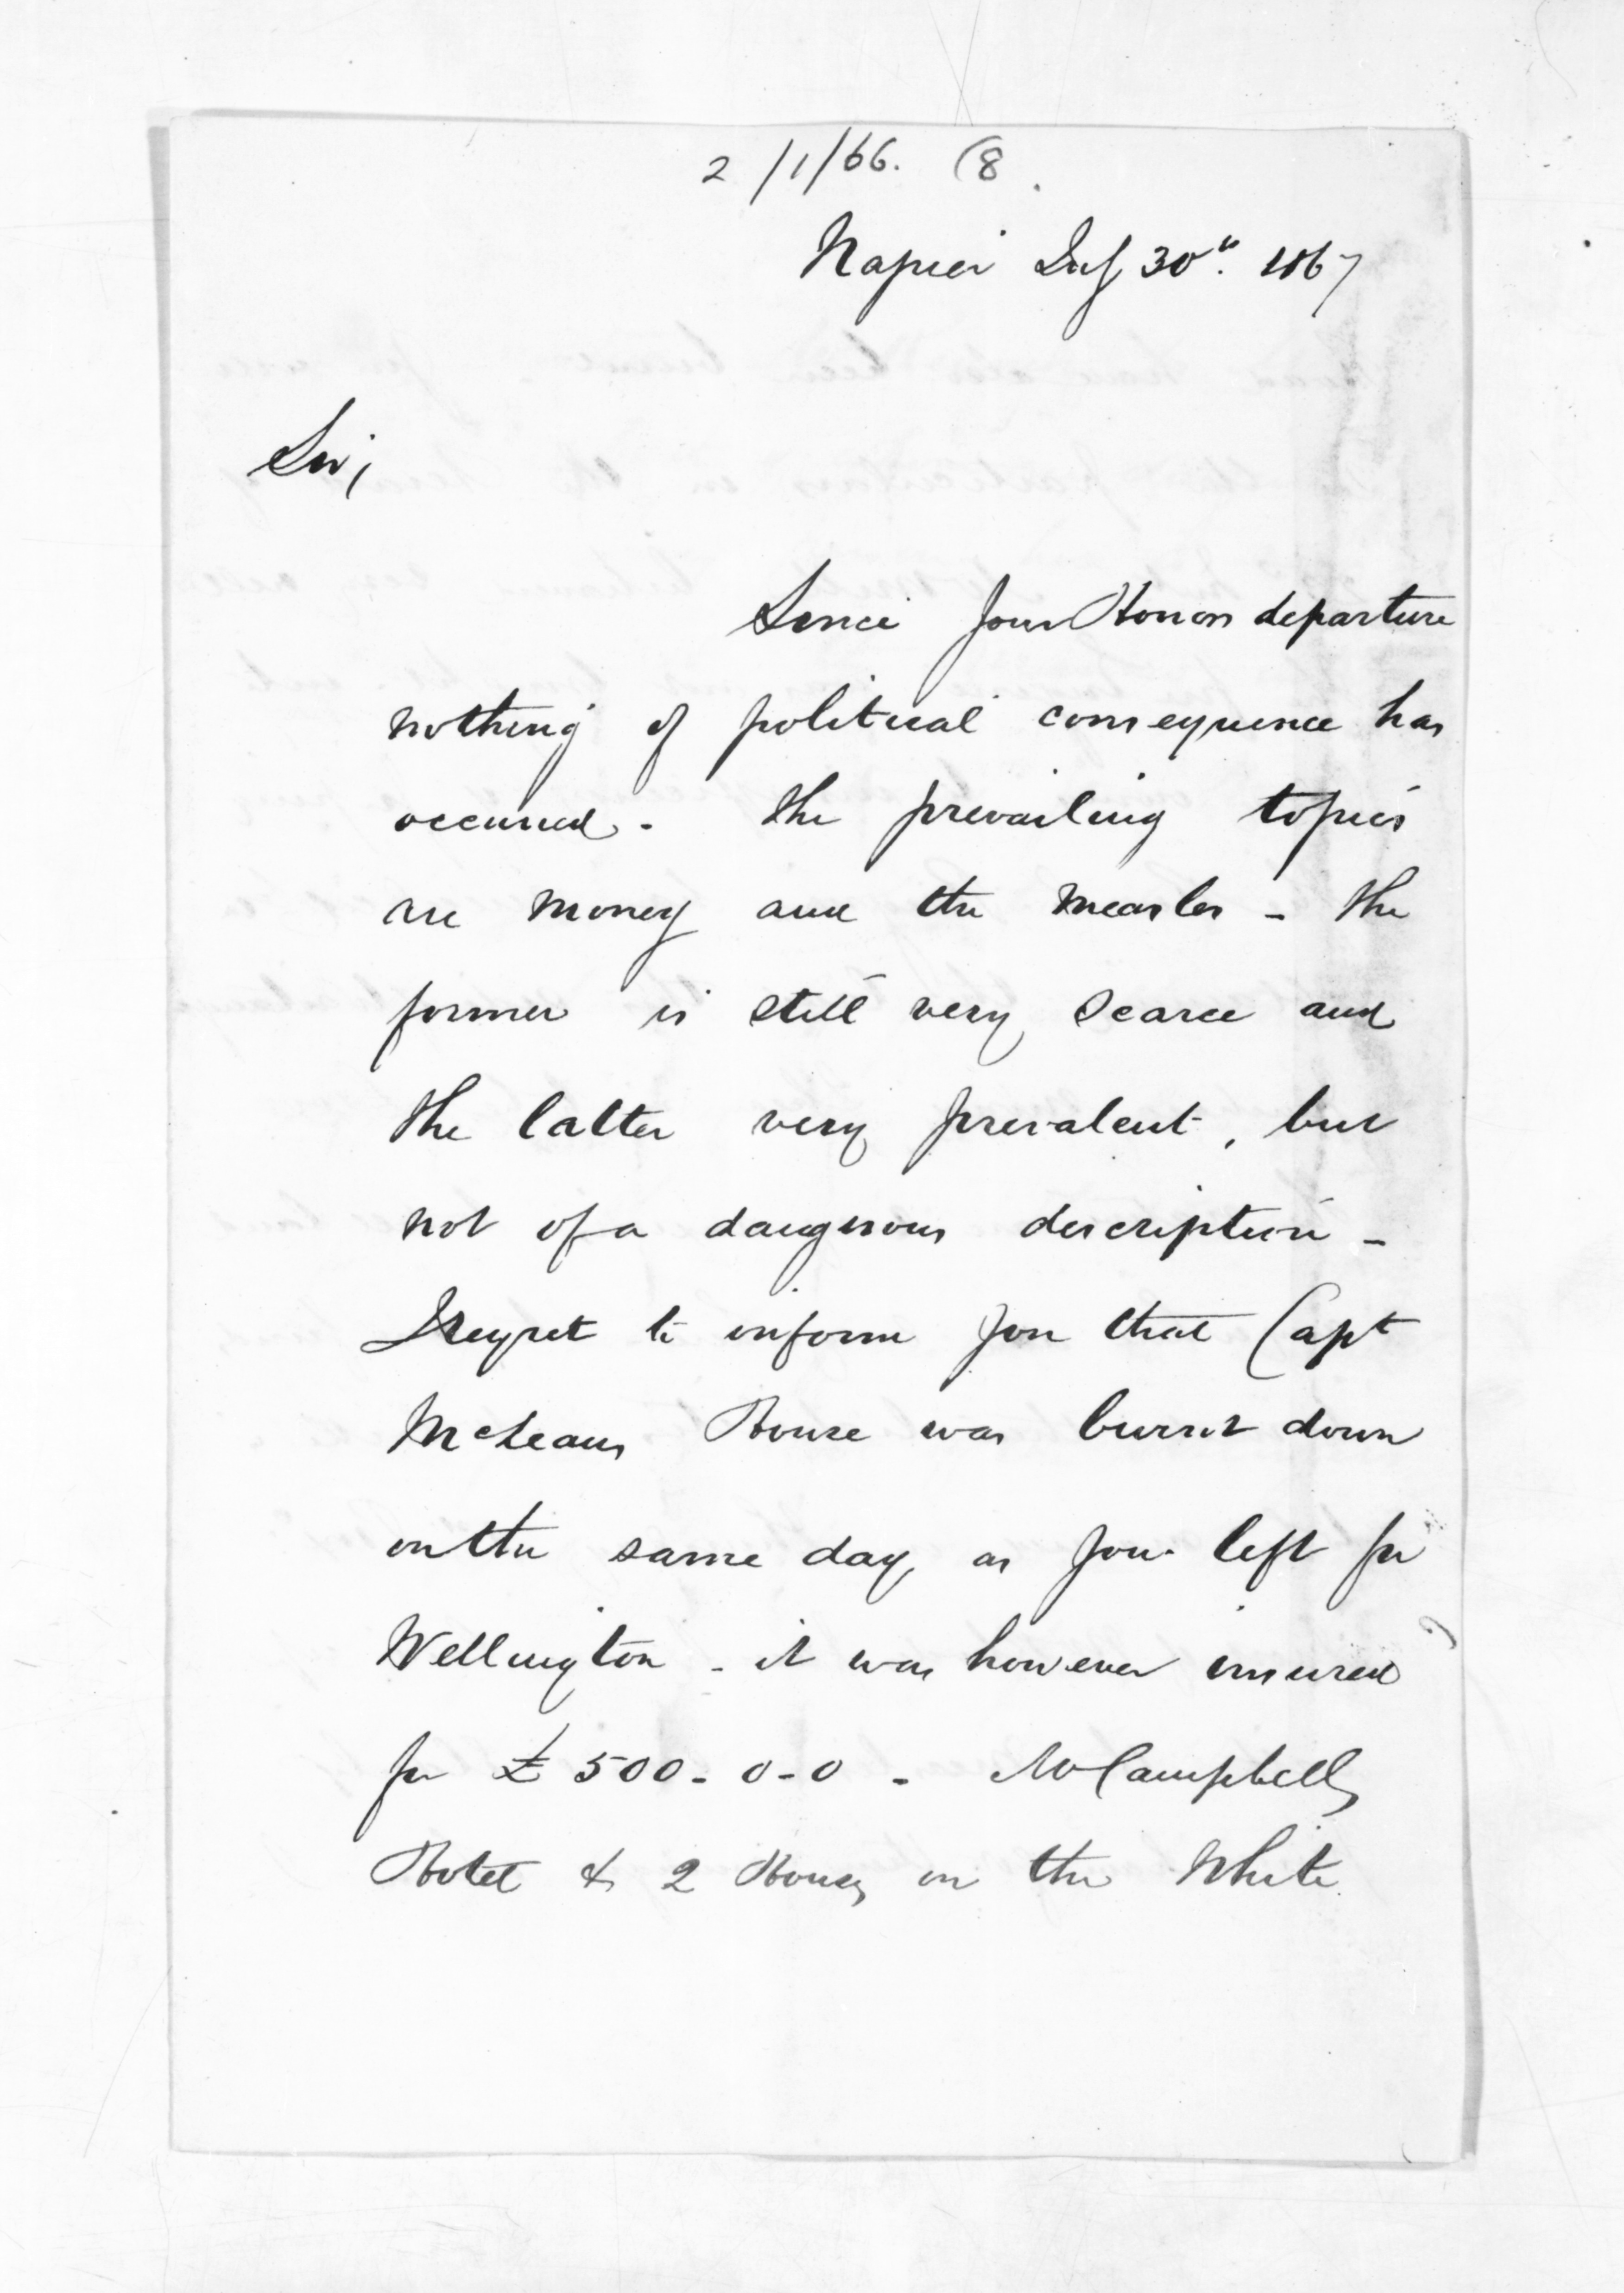 2/1/66. (8.
Napier July 30th. 1867
Sir,
Since Your Honors departure
nothing of political consequence has
occurred. The prevailing topics
are money and the measles - the
former is still very scarce and
the latter very prevalent, but
not of a dangerous description -
I regret to inform you that Capt
McLeans House was burnt down
on the same day as you left for
Wellington - it was however insured
for £500-0-0 - McCampbells
Hotel & 2 Houses on the White